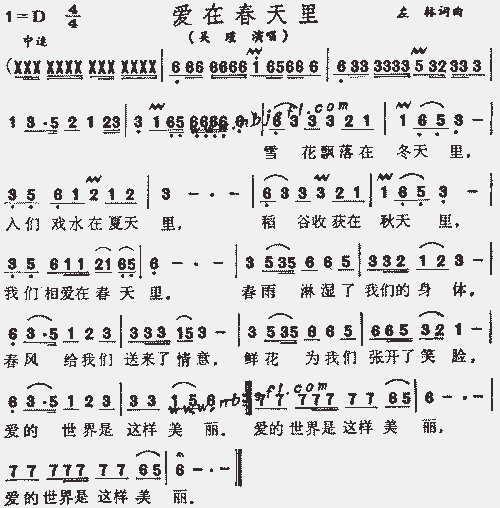 1=D 4/4 爱在春天里 左 赫词曲
中速 (吴 瑾 演唱)
(XXX XXXX XX XXXX | 6 66 6666 1 65666 6 | 6 33 3333 5 32 33 3 |
1 3·5 2 1 23 | 3 1 65 6666 6 | 6 3 3 3 2 1 | 1 6 5 3 - |
雪 花飘落在 冬天 里,
3 5 6 1 2 1 2 | 3 - · - | 6 3 3 3 2 1 | 1 6 5 3 - |
人们 戏水在夏天 里, 稻 谷收获在 秋天 里,
3 5 6 11 21 65 | 6 - · - | 3 535 6 6 5 | 3 3 2 1 2 3 - |
我们相爱在春 天 里。 春雨 淋湿了 我们的 身 体,
6 3·5 1 2 3 | 3 3 3 1 5 3 - | 3 535 6 6 5 | 6 6 5 3 2 1 - |
春风 给我们 送来了 情意, 鲜花 为我们 张开了 笑 脸,
6 3·5 1 2 3 | 3 3 3 1 5 6 | 7 7 7 77 7 7 6 5 | 6 - · - |
爱的 世界是 这样 美 丽。 爱的世界是 这样 美 丽,
7 7 7 77 7 7 6 5 | 6 - · - |
爱的世界是 这样 美 丽。